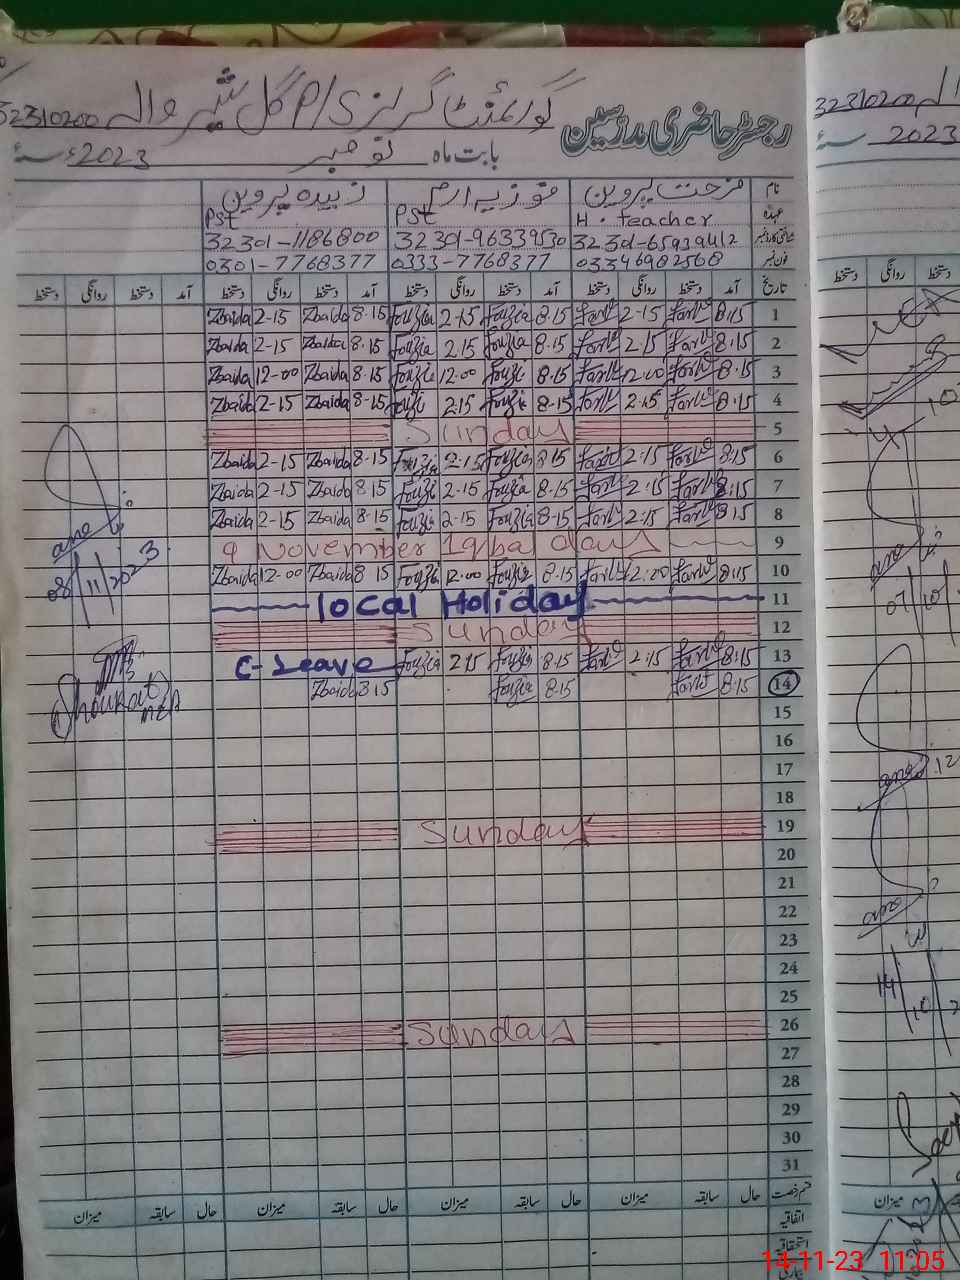 گورنمنٹ گرلز P/S گل شیر والہ 32310200
رجسٹر حاضری مدرسین
بابت ماہ نومبر 2023ء سنہ
نام فرحت پروین فوزیہ ارم زبیدہ پروین
عہدہ H. teacher Pst Pst
شناختی کارڈ نمبر 32301-65939412 32301-96339530 32301-1186800
فون نمبر 03346982568 0333-7768377 0301-7768377
تاریخ آمد دستخط روانگی دستخط آمد دستخط روانگی دستخط آمد دستخط روانگی دستخط آمد دستخط روانگی دستخط
Zbaida 2-15 Zbaida 8-15 Fouzia 2-15 Fouzia 8-15 2-15 8:15 1
Zbaida 2-15 Zbaida 8-15 Fouzia 2.15 Fouzia 8-15 2:15 8:15 2
Zbaida 12-00 Zbaida 8-15 Fouzia 12.00 Fouzi 8-15 12.00 8.15 3
Zbaida 2-15 Zbaida 8-15 Fouzi 2:15 Fouzia 8-15 2:15 8:15 4
Sunday 5
Zbaida 2-15 Zbaida 8-15 Fouzia 2:15 Fouzia 8-15 2:15 8:15 6
Zbaida 2-15 Zbaida 8-15 Fouzi 2-15 Fouzia 8-15 2:15 8:15 7
Zbaida 2-15 Zbaida 8-15 Fouzia 2-15 Fouzia 8-15 2:15 8:15 8
9 November Iqbal days 9
Zbaida 12-00 Zbaida 8 15 Fouzia 12.00 Fouzia 8-15 12:00 8:15 10
local Holiday 11
Sunday 12
C-Leave Fouzia 2:15 Fouzia 8-15 2:15 8:15 13
Zbaida 8.15 Fouzia 8-15 8:15 14
15
16
17
18
Sunday 19
20
21
22
23
24
25
Sunday 26
27
28
29
30
31
08/11/2023
Shoukat
MEA
قسم رخصت حال سابقہ میزان حال سابقہ میزان حال سابقہ میزان حال سابقہ میزان
اتفاقیہ
استحقاقیہ
بیماری
32310200
2023
دستخط روانگی دستخط
07/10
14/10
میزان
14-11-23 11:05